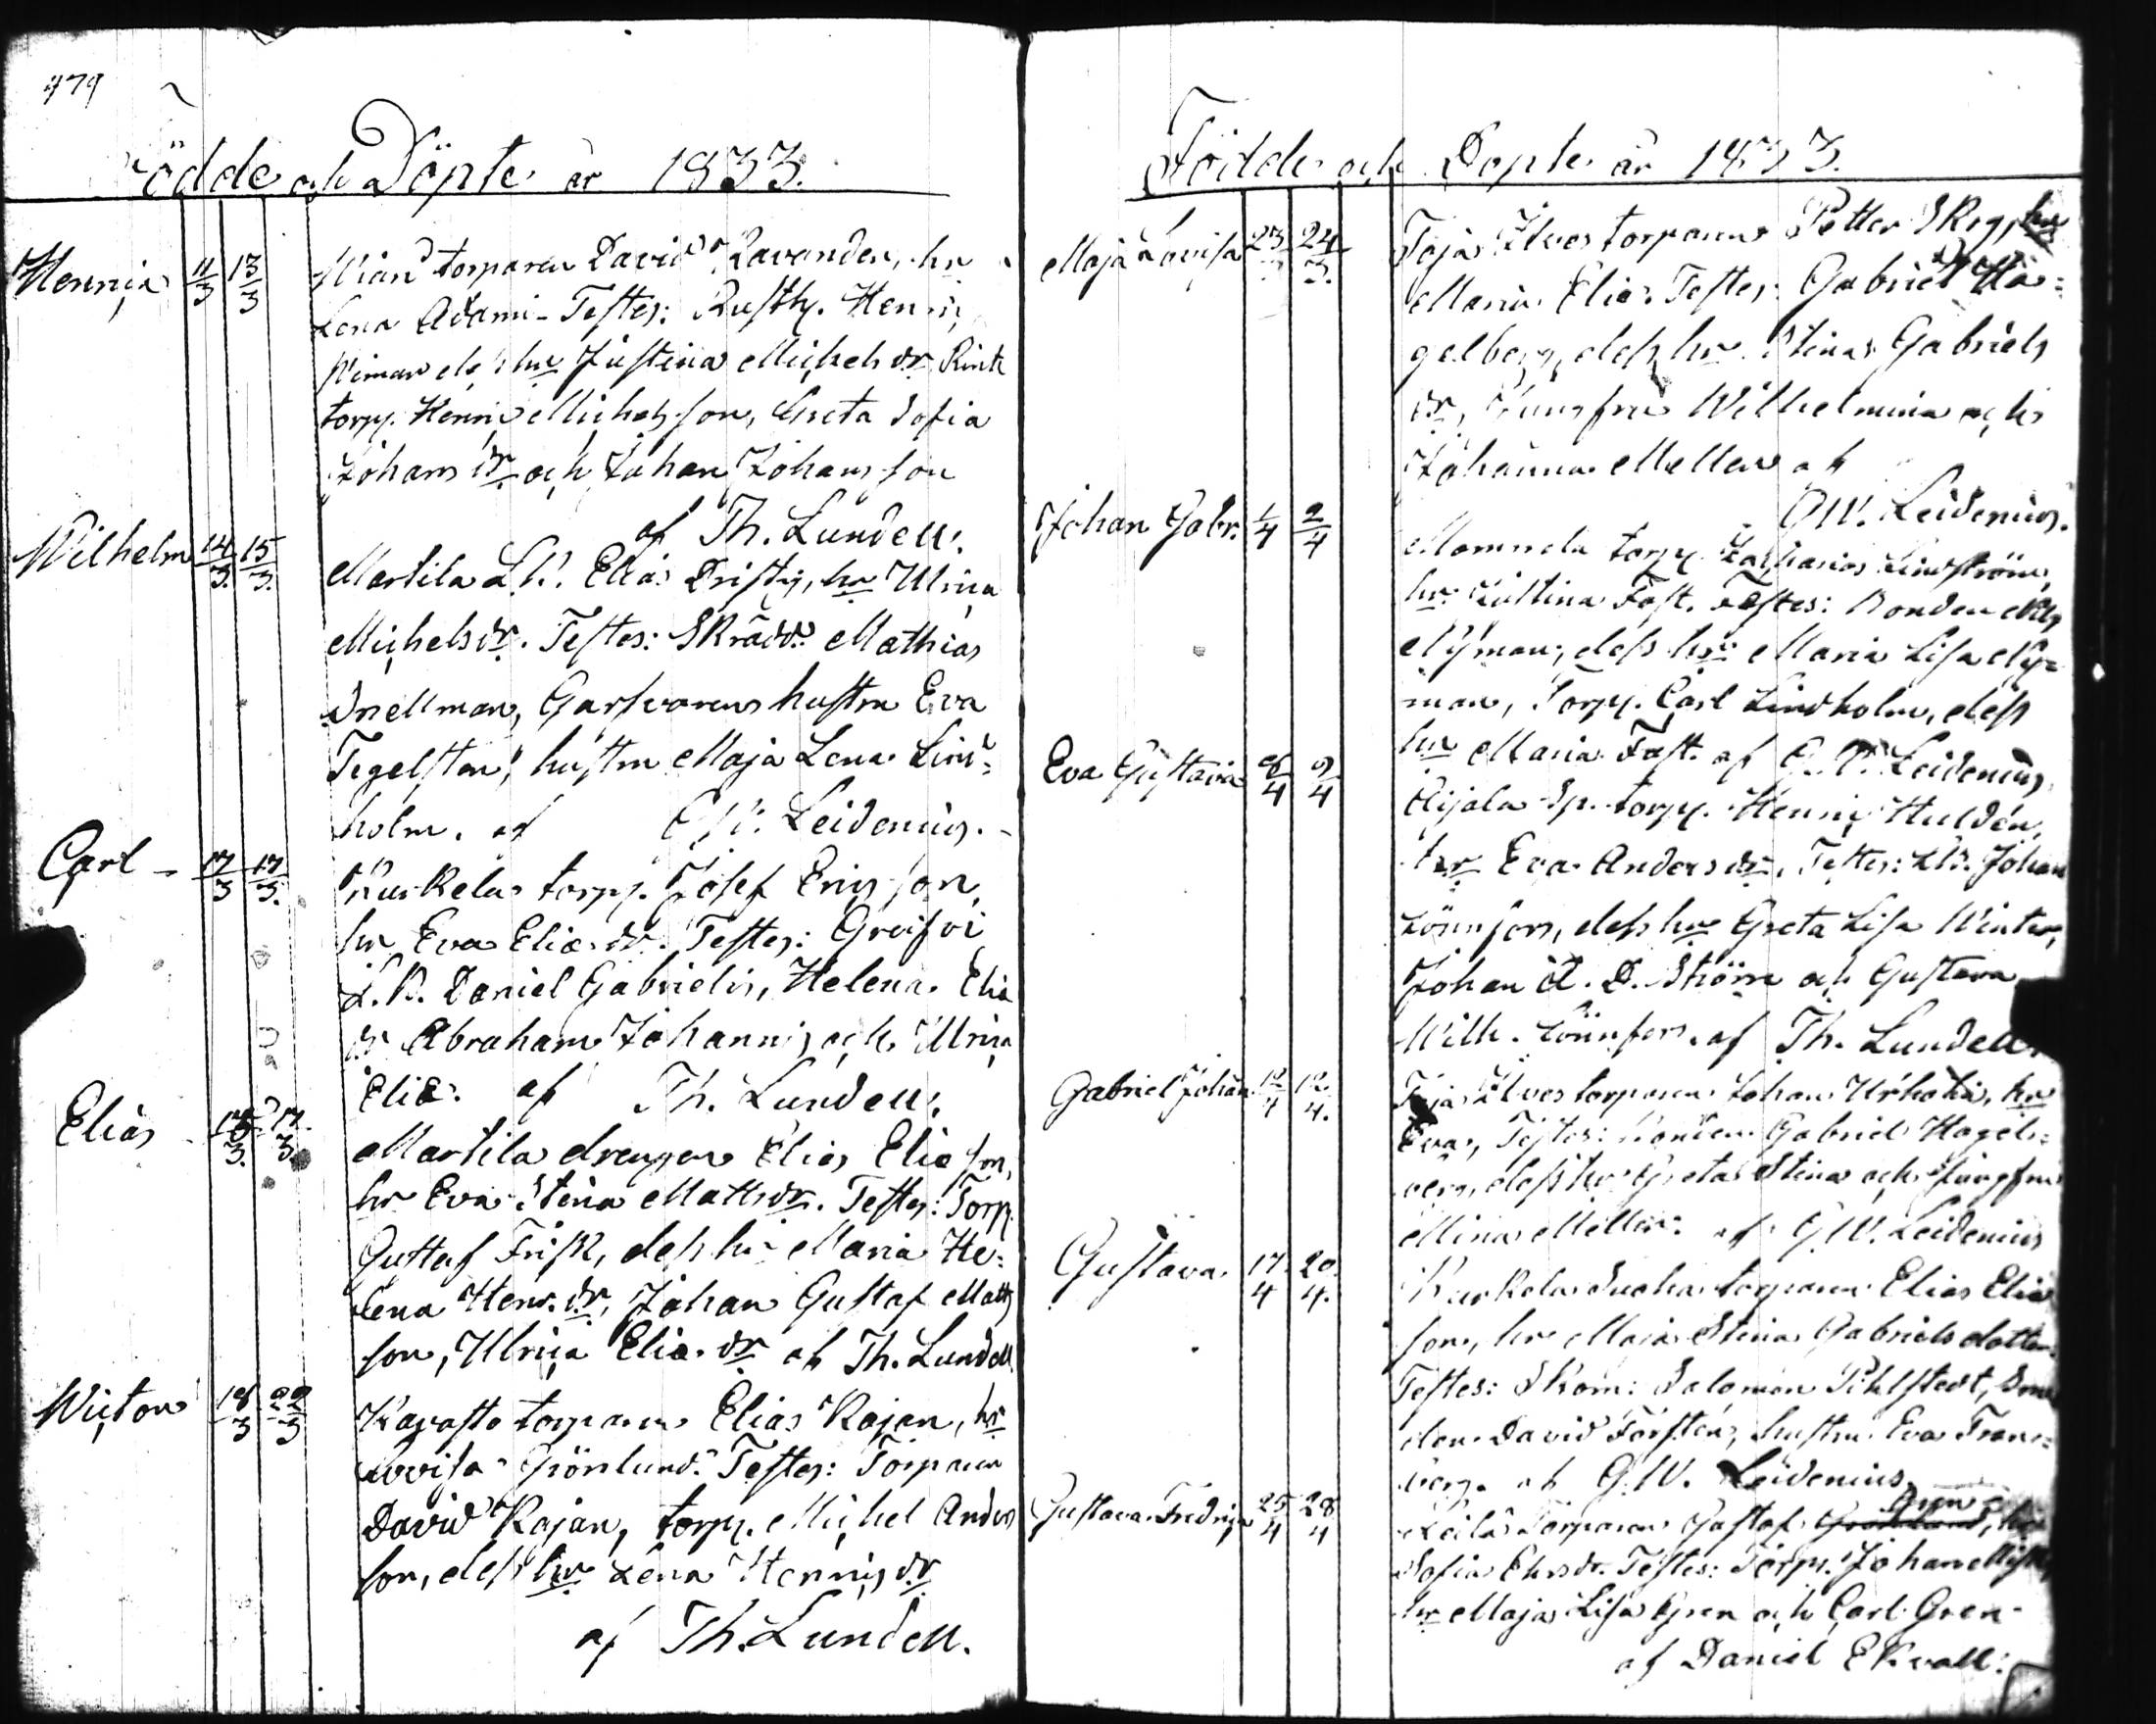 479
Födde och Döpte år 1833.
Henric 11/3 13/3 Wian torparen David Ravander, hr
Lena Adami- Testes: Rusth. Henric
Wiman dess hr Justina Michelsdr Rinte
torp. Henric Michelsson, Greta Sofia
Johansdr och Johan Johansson
af Th. Lundell.
Wilhelm 14/3 15/3 Martila Elias hr Ulrica
Michelsdr. Testes: Skrädd. Mathias
Snellman, Garfvarens hustru Eva
Tegelsten, hustru Maja Lena Lind=
holm. af G.W. Leidenius.
Carl 17/3 17/3 Kurkela torp. Josef Ericsson,
hr Eva Eliædr. Testes:
Daniel Gabrielis, Helena Eliæ
dr Abraham Johannis och Ulrica
Eliæ: af Th. Lundell.
Elias 3. 17/3 Martila drengen Elias Eliæson,
hr Eva Stina Mattsdr. Testes: Torp.
Gustaf Frisk, dess hr Maria He=
lena Henr.dr, Johan Gustaf Matts
son, Ulrica Eliædr af Th. Lundell
Wictor 18/3 22/3 Kavasto torparen Elias Kajan, hr
Lovisa Grönlund. Testes: Torparen
David Kajan, torp. Michel Anders
son, dess hr Lena Henricsdr
af Th. Lundell.
Födde och Döpte år 1833.
Maja Lovisa 23/3 24/3 Toja Ilves torparen Petter Skog, hr
Maria Eliæ. Testes: Gabriel Ha=
gelberg, dess hr Stina Gabriels
dr, Jungfru Wilhelmina och
Johanna Mellen af
G.W. Leidenius.
Johan Gabr. 1/4 2/4 torp. Zacharias Lindström,
hr Justina Fast. Testes: Bonden
Nyman, dess hr Maria Lisa Ny=
man, Torp. Carl Lindholm, dess
hr Maria Fast. af G.W. Leidenius
Eva Gustava 8/4 9/4 torp. Henric Huldén,
hr Eva Andersdr. Testes: Johan
Lönnfors, dess hr Greta Lisa Winter,
Johan och Gustava
Wilh. Lönnfors. af Th. Lundell
Gabriel Johan 12/4 12/4. Toja Ilves torparen Johan hr
Eva, Testes: Bonden Gabriel Hagel=
berg, dess hr Greta Stina och Jungfru
Mina Mellen: af G.W. Leidenius
Gustava 17/4 20/4. Kurkela torparen Elias Eliæ
son, hr Maja Stina Gabriels dotter.
Testes: Skom: Salomon Pihlstedt, Bon
den David Forstén, hustru Eva Tran=
berg. af G.W. Leidenius.
Gustava Fredrica 25/4 28/4 torparen Gustaf Gren, hr
Sofia Testes: Torp. Johan
hr Maja Lisa Gren och Carl Gren-
af Daniel Ekvall: